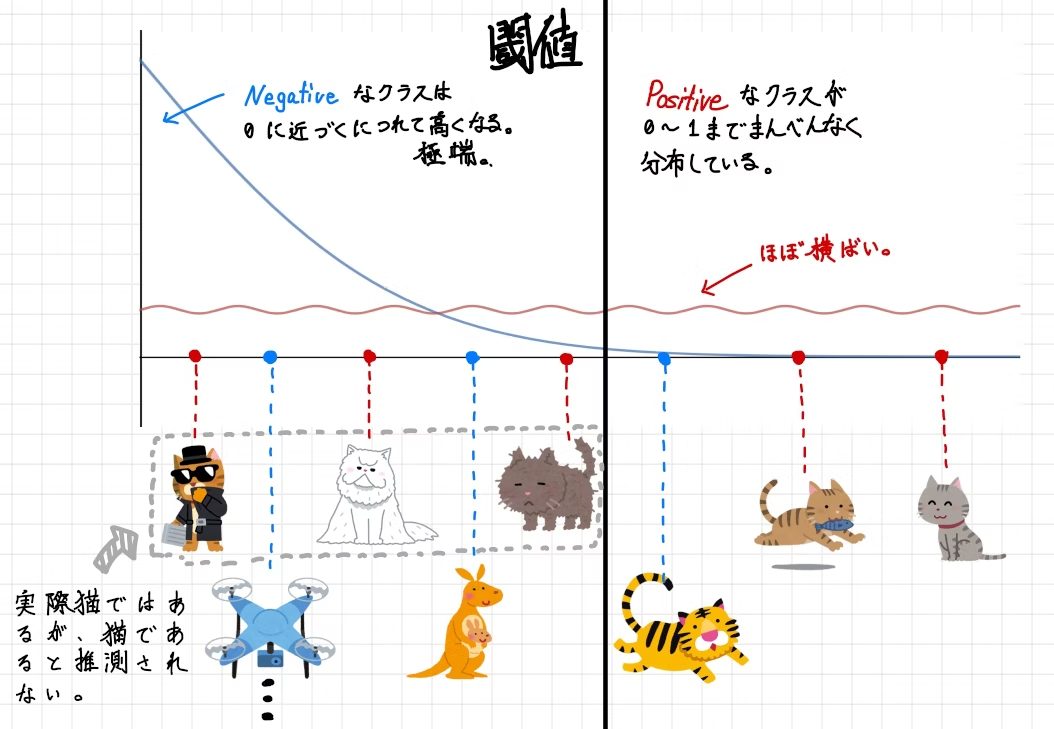 閾値
Negative なクラスは
0 に近づくにつれて高くなる。
極端。
Positive なクラスが
0～1までまんべんなく
分布している。
ほぼ横ばい。
実際猫ではあ
るが、猫であ
ると推測され
ない。